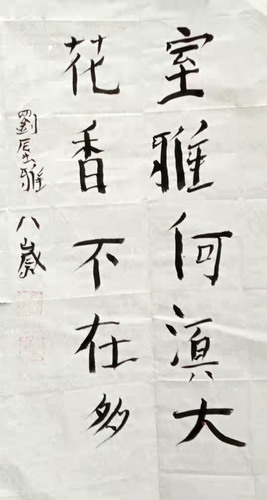 室雅何湏大
花香不在多
劉辰雅 八歲